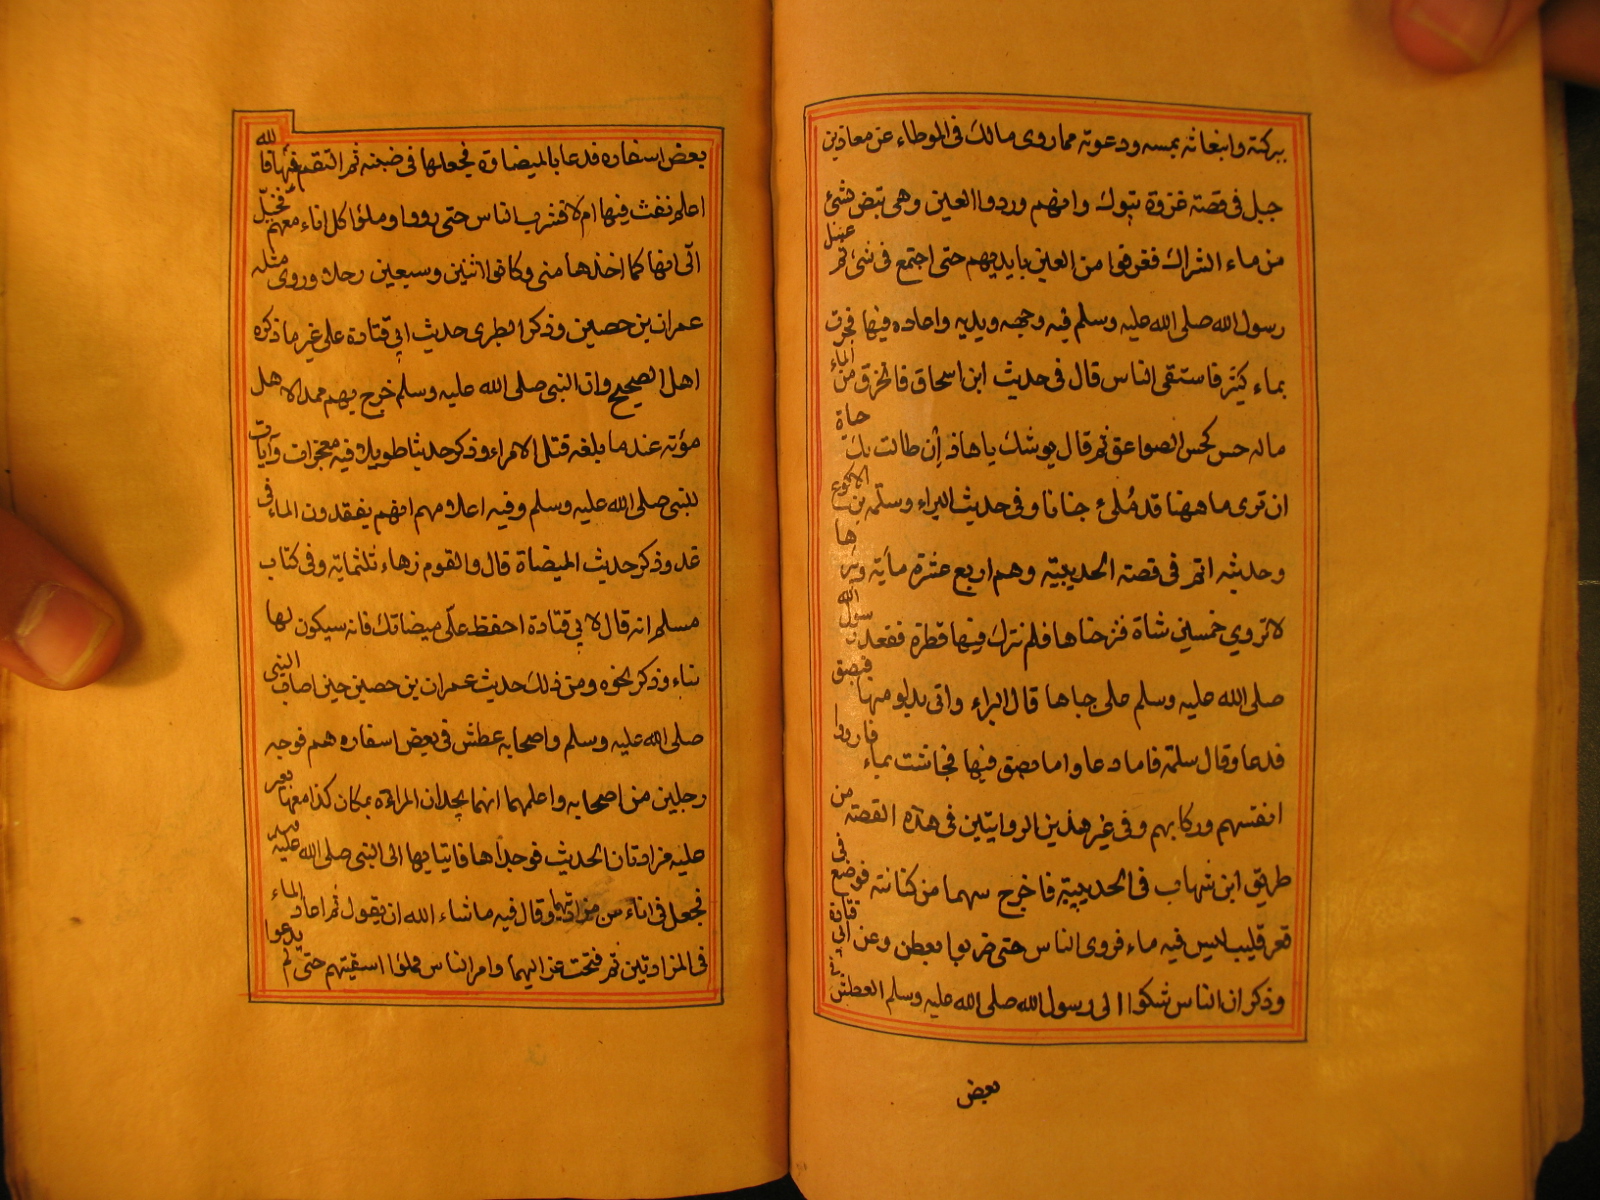 ببركته وانبعاثه بمسه ودعوته مما روى مالك فى الموطاء عن معاذ بن
جبل فى قصة غزوة تبوك وانهم وردوا العين وهى تبض بشئ
من ماء مثل الشراك فغرفوا من العين بايديهم حتى اجتمع فى شئ ثم غسل
رسول الله صلى الله عليه وسلم فيه وجهه ويديه واعاده فيها فجرت
بماء كثير فاستقى الناس قال فى حديث ابن اسحاق فانخرق من الماء
ماله حس كحس الصواعق ثم قال يوشك يا معاذ اِن طالت بك حياة
ان ترى ما ههنا قد مُلئ جنانا وفى حديث البراء وسلمه بن الاكوع
وحديثه اتم فى قصة الحديبيه وهم اربع عشرة مأية وبيرها
لا تروي خمسين شاة فنزحناها فلم نترك فيها قطرة فقعد رسول الله
صلى الله عليه وسلم على جباها قال البراء واتى بدلو منها فبصق
فدعا وقال سلمة فاما دعا واما بصق فيها فجاشت بماء فارووا
انفسهم وركابهم وفى غير هذين الروايتين فى هذه القصة من
طريق ابن شهاب فى الحديبية فاخرج سهما من كنانته فوضع فى
قعر قليب ليس فيه ماء فروى الناس حتى ضربوا بعطن وعن ابى قتادة
وذكر ان الناس شكوا الى رسول الله صلى الله عليه وسلم العطش فى
بعض
بعض اسفاره فدعا بالميضاة فجعلها فى ضبنه ثم التقم فمها فالله
اعلم نفث فيها ام لا فشرب الناس حتى رووا وملؤا كل اناء معهم فخيل
الّى انها كما اخذها منى وكانوا اثنين وسبعين رجلا وروى مثله
عمران بن حصين وذكر الطبرى حديث ابي قتادة على غير ما ذكره
اهل الصحيح وان النبى صلى الله عليه وسلم خرج بهم ممدا لاهل
مؤته عندما بلغه قتل الامراء وذكر حديثا طويلا فيه معجزات وآيات
للنبى صلى الله عليه وسلم وفيه اعلامهم انهم يفقدون الماء فى
غد وذكر حديث الميضاة قال والقوم زهاء ثلثماية وفى كتاب
مسلم انه قال لابي قتادة احفظ علّى ميضاتك فانه سيكون لها
نباء وذكر نحوه ومن ذلك حديث عمران بن حصين حين اصاب النبى
صلى الله عليه وسلم واصحابه عطش فى بعض اسفارهم فوجه
رجلين من اصحابه واعلمهما انهما يجدان المراءة بمكان كذا معها بعير
عليه مزادتان الحديث فوجداها فاتيا بها الى النبى صلى الله عليه
فجعل فى اناء من مزادتيها وقال فيه ما شاء الله ان يقول ثم اعاد الماء
فى المزادتين ثم فتحت عزاليهما وامر الناس فملؤا اسقيتهم حتى لم يدعوا